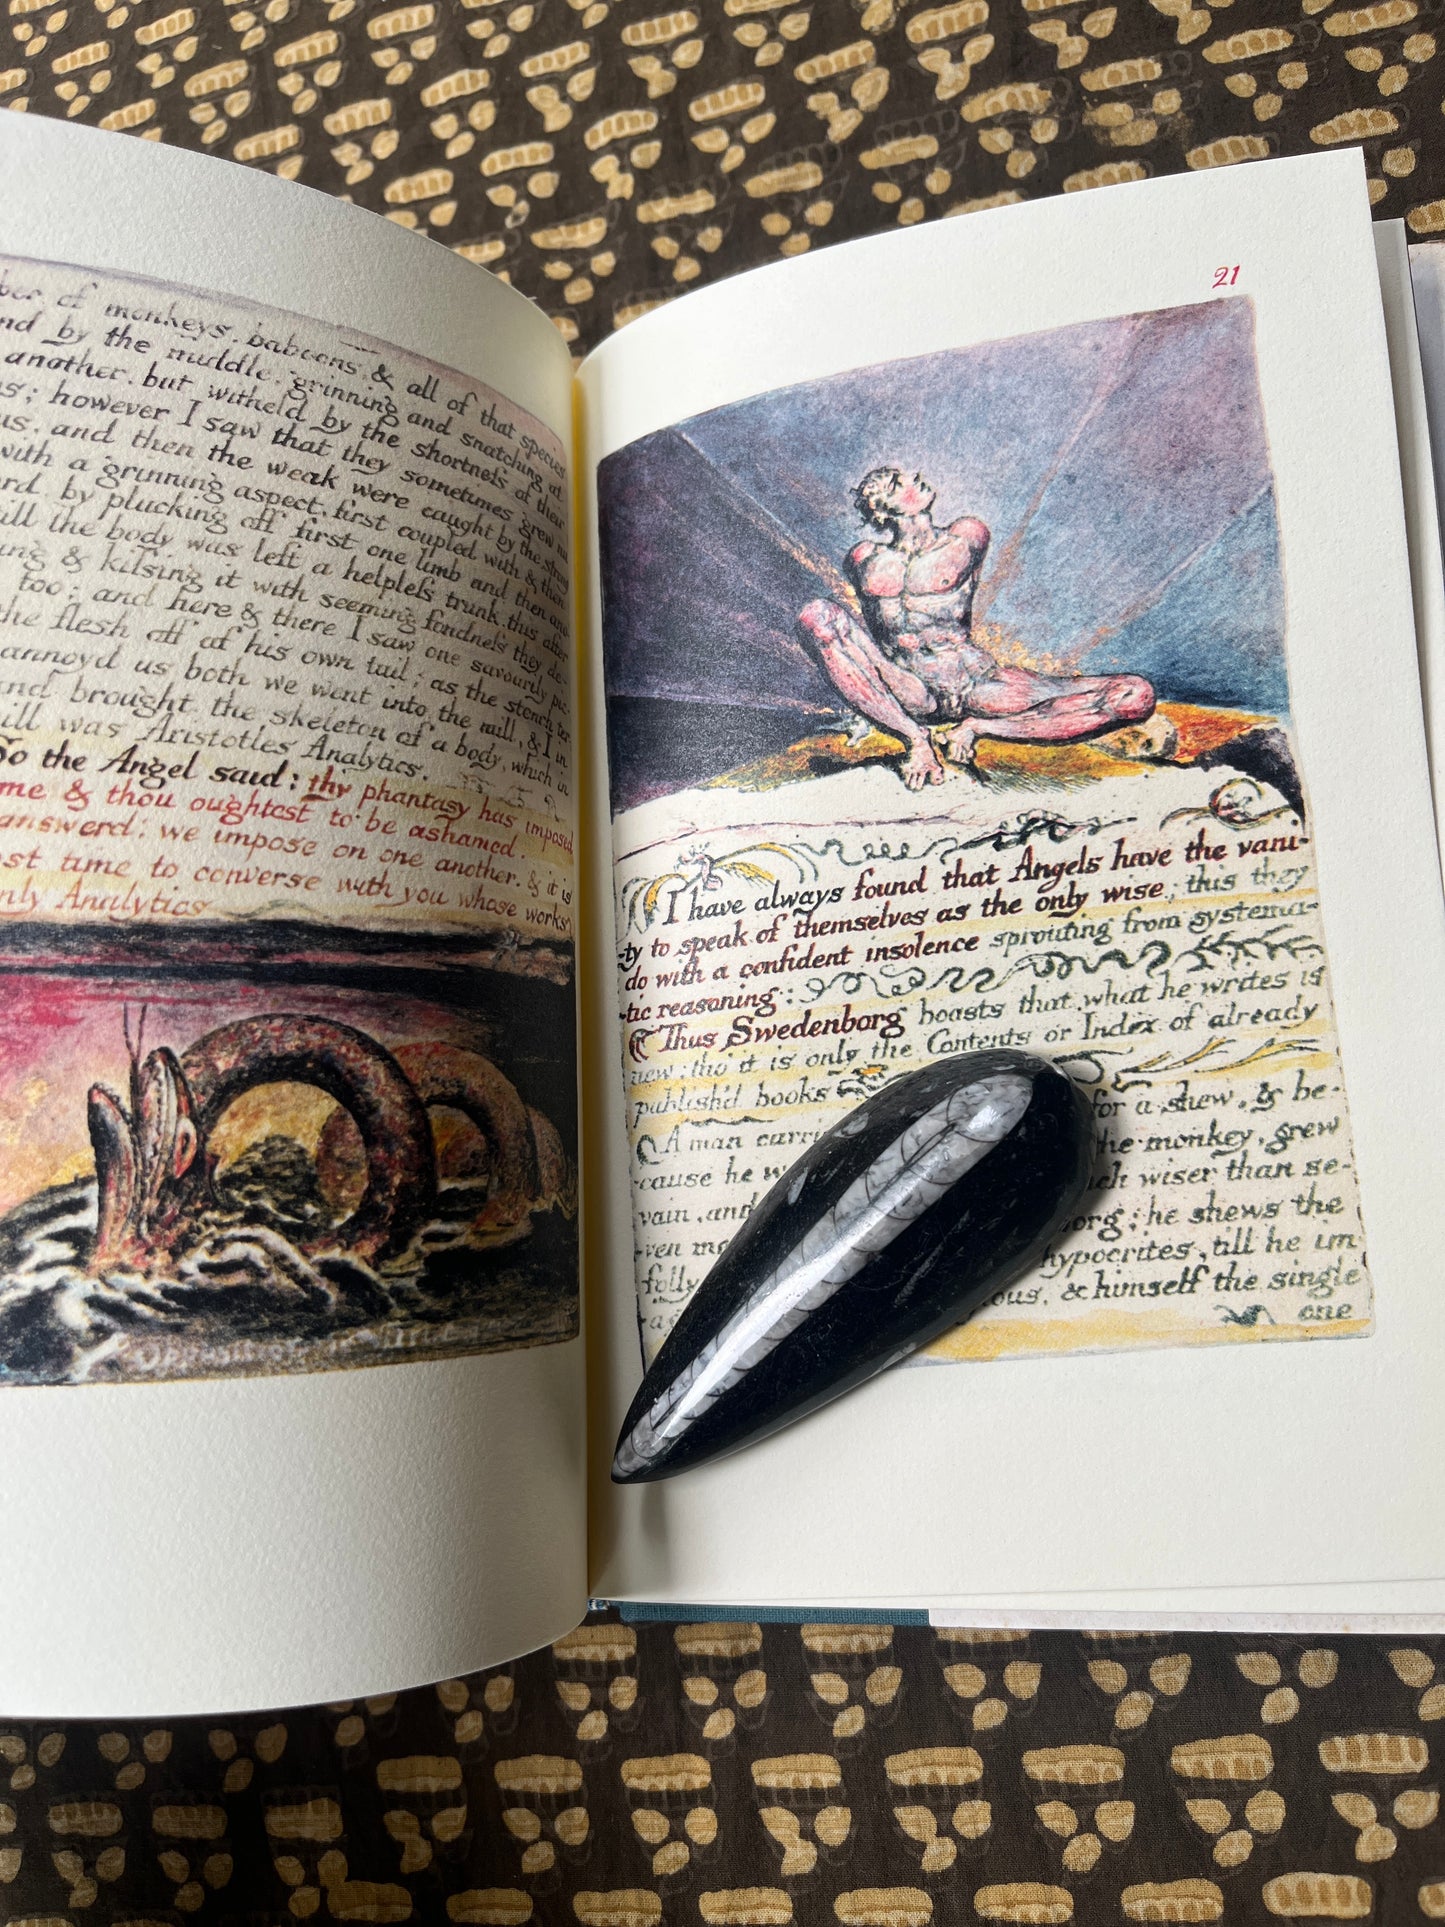 ber of monkeys. baboons. & all of that species
nd by the middle. grinning and snatching at
another. but witheld by the shortness of their
s; however I saw that they sometimes grew nu
us. and then the weak were caught by the strong
with a grinning aspect. first coupled with & then
rd. by plucking off first one limb and then ano
ill the body was left a helpless trunk. this after
ing & kissing it with seeming fondness they de-
too; and here & there I saw one savourily pic
the flesh off of his own tail; as the stench ter
annoyd us both we went into the mill, & I in
nd brought the skeleton of a body, which in
ill was Aristotles Analytics.
So the Angel said: thy phantasy has imposed
me & thou oughtest to be ashamed.
answerd: we impose on one another. & it is
ost time to converse with you whose works
nly Analytics
21
I have always found that Angels have the vani-
-ty to speak of themselves as the only wise; this they
do with a confident insolence sprouting from systema-
-tic reasoning:
Thus Swedenborg boasts that what he writes is
new; tho it is only the Contents or Index of already
publish'd books
A man carri for a shew. & be-
-cause he w the monkey, grew
vain, and ch wiser than se-
-ven m org; he shews the
folly hypocrites, till he im
a ious. & himself the single
one